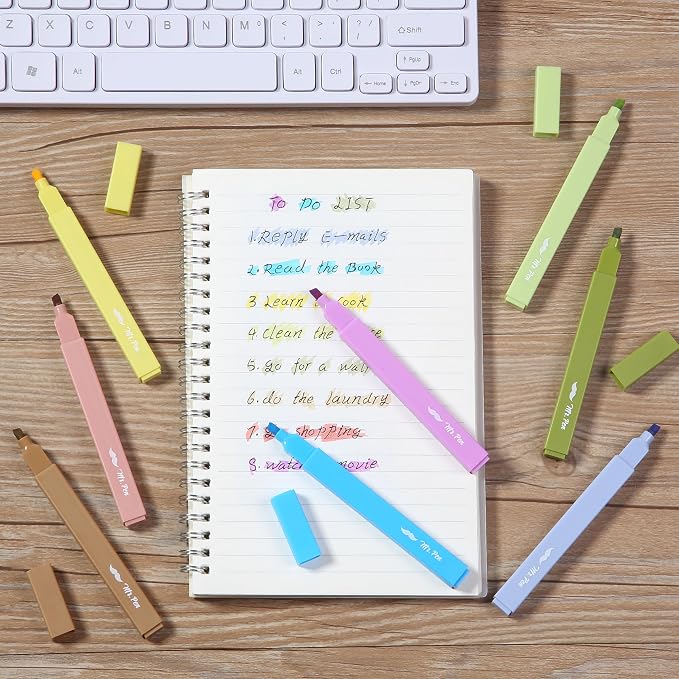 Z X C V B N M < > ? Shift
Alt Alt Ctrl Home PgUp PgDn End
TO DO LIST
1. REPLY E-mails
2. Read the Book
3 Learn cook
4 clean the
5. go for a walk
6. do the laundry
7. go shopping
8. watch movie
Mr. Pen
Mr. Pen
Mr. Pen
Mr. Pen
Mr. Pen
Mr. Pen
Mr. Pen
Mr. Pen